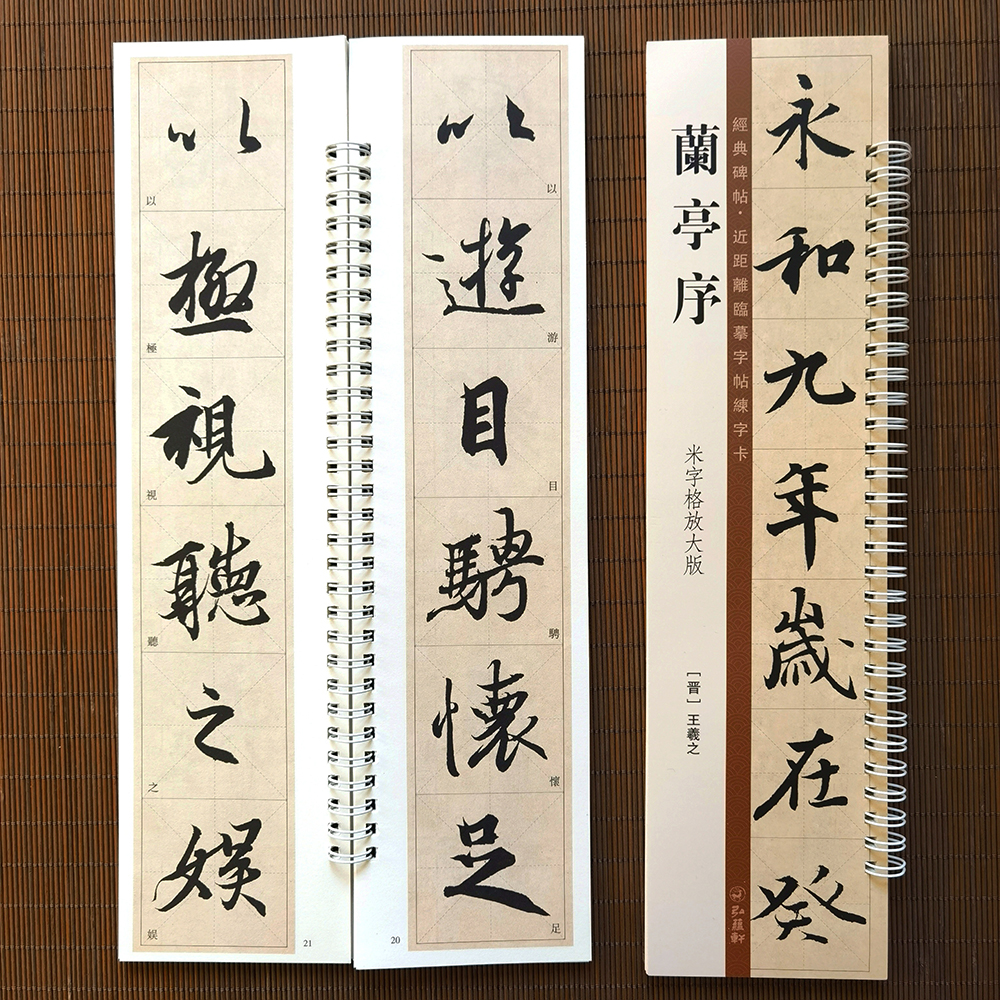 永和九年歲在癸
經典碑帖·近距離臨摹字帖練字卡
弘蘊軒
蘭亭序
米字格放大版
[晋]王羲之
以遊目騁懷足
以
游
目
騁
懷
足
20
以極視聽之娛
以
極
視
聽
之
娛
21